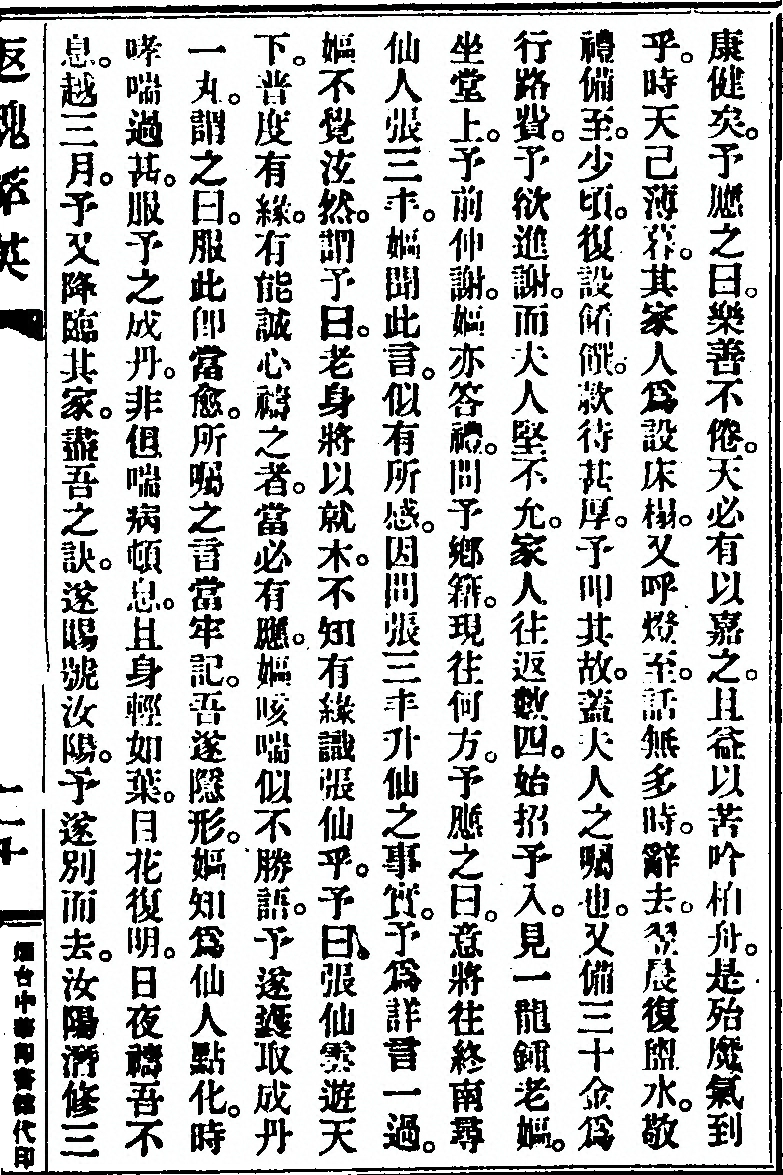 康健矣。予應之曰。樂善不倦。天必有以嘉之。且益以苦吟柏舟。是殆魔氣到
乎。時天已薄暮。其家人爲設床榻。又呼燈至。話無多時。辭去。翌晨復盥水。敬
禮備至。少頃。復設餚饌。款待甚厚。予叩其故。蓋夫人之囑也。又備三十金爲
行路費。予欲進謝。而夫人堅不允。家人往返數四。始招予入。見一龍鍾老嫗。
坐堂上。予前伸謝。嫗亦答禮。問予鄉籍。現往何方。予應之曰。意將往終南尋
仙人張三丰。嫗聞此言。似有所感。因問張三丰升仙之事實。予爲詳言一過。
嫗不覺泫然。謂予曰。老身將以就木。不知有緣識張仙乎。予曰。張仙雲遊天
下。普度有緣。有能誠心禱之者。當必有應。嫗咳喘似不勝語。予遂取成丹
一丸。謂之曰。服此卽當愈。所囑之言當牢記。吾遂隱形。嫗知爲仙人點化。時
哮喘過甚。服予之成丹。非但喘病頓息。且身輕如葉。目花復明。日夜禱吾不
息。越三月。予又降臨其家。盡吾之訣。遂賜號汝陽。予遂別而去。汝陽潛修三
返魂萃英
二十
烟台中華印書館代印